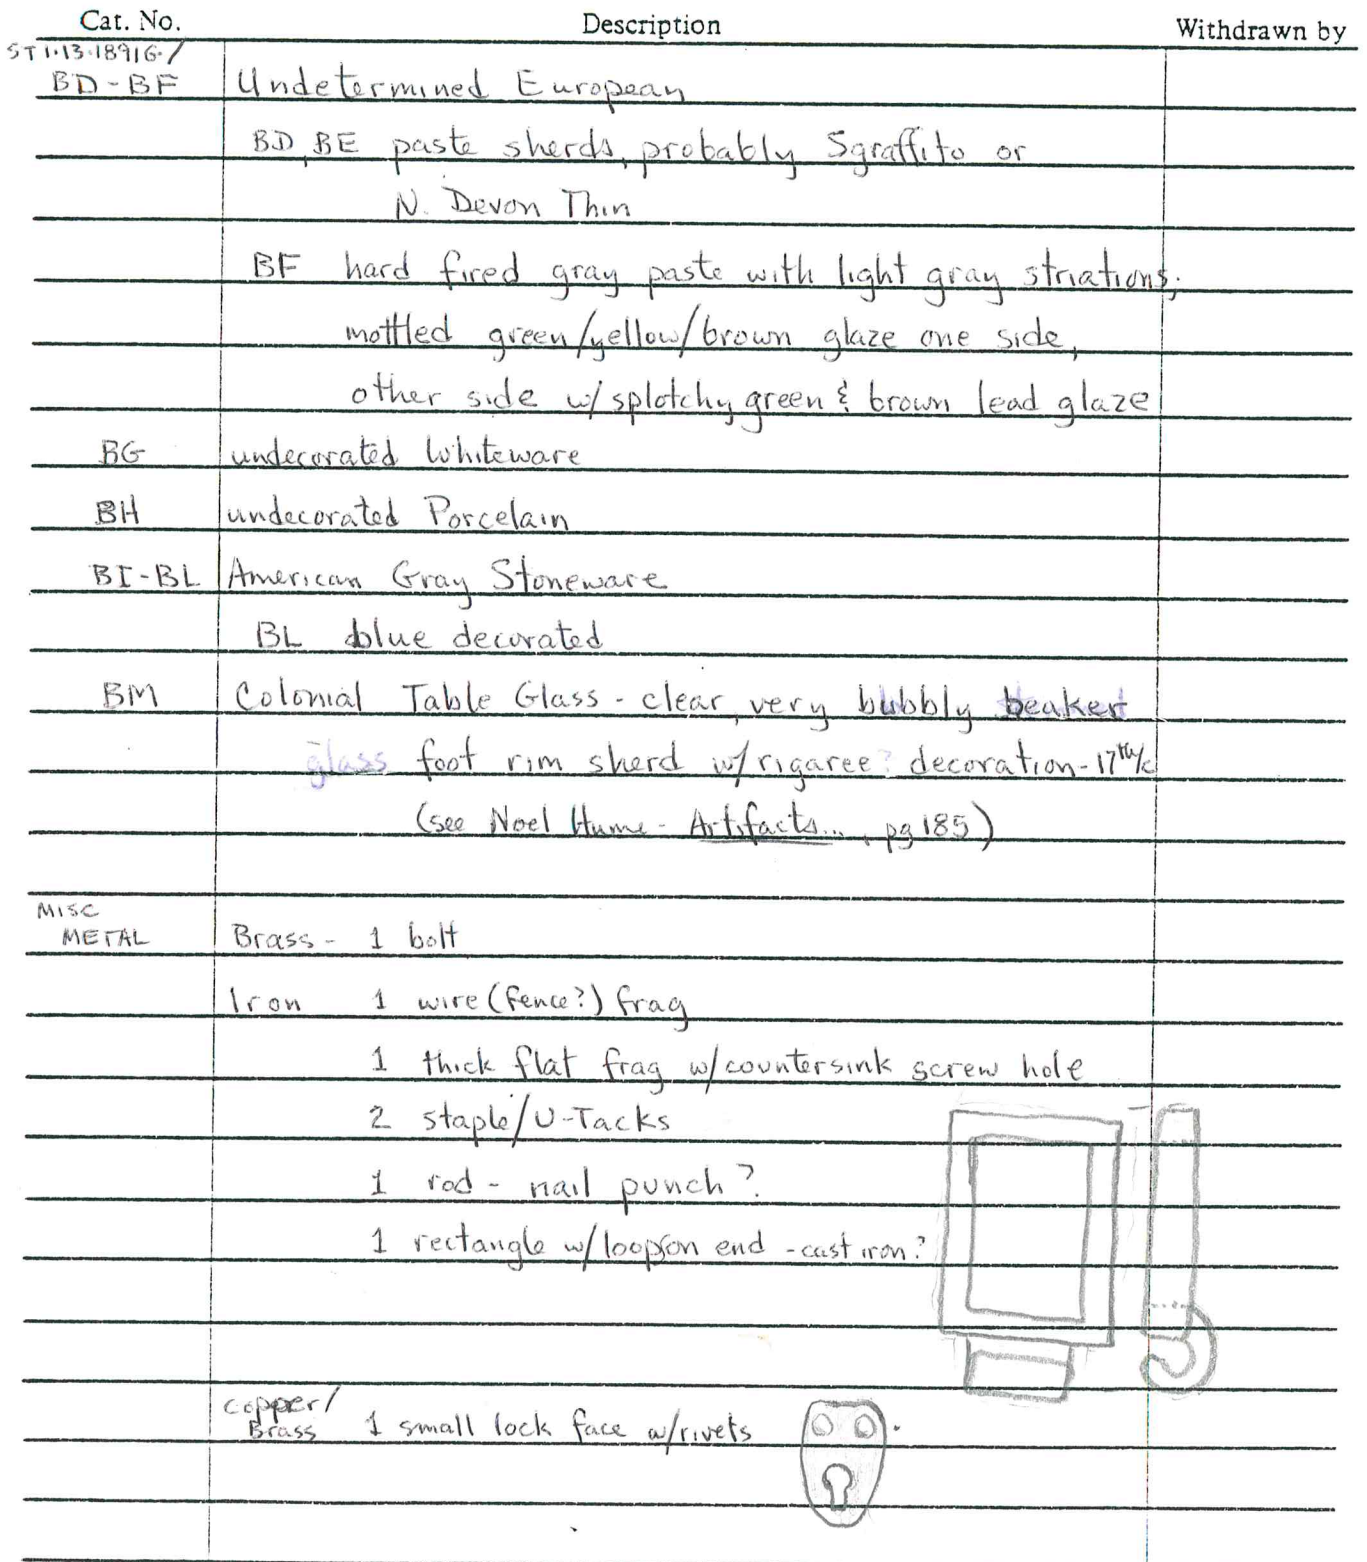 Cat. No. Description Withdrawn by
ST1·13·18916·/
BD-BF Undetermined European
BD, BE paste sherds, probably Sgraffito or
N. Devon Thin
BF hard fired gray paste with light gray striations;
mottled green/yellow/brown glaze one side,
other side w/ splotchy green & brown lead glaze
BG undecorated Whiteware
BH undecorated Porcelain
BI-BL American Gray Stoneware
BL blue decorated
BM Colonial Table Glass - clear, very bubbly beaker
glass foot rim sherd w/ rigaree? decoration - 17th/c
(see Noel Hume - Artifacts..., pg 185)
MISC
METAL Brass - 1 bolt
Iron 1 wire (fence?) frag
1 thick flat frag w/countersink screw hole
2 staple/U-Tacks
1 rod - nail punch?
1 rectangle w/loop on end - cast iron?
copper/
Brass 1 small lock face w/rivets